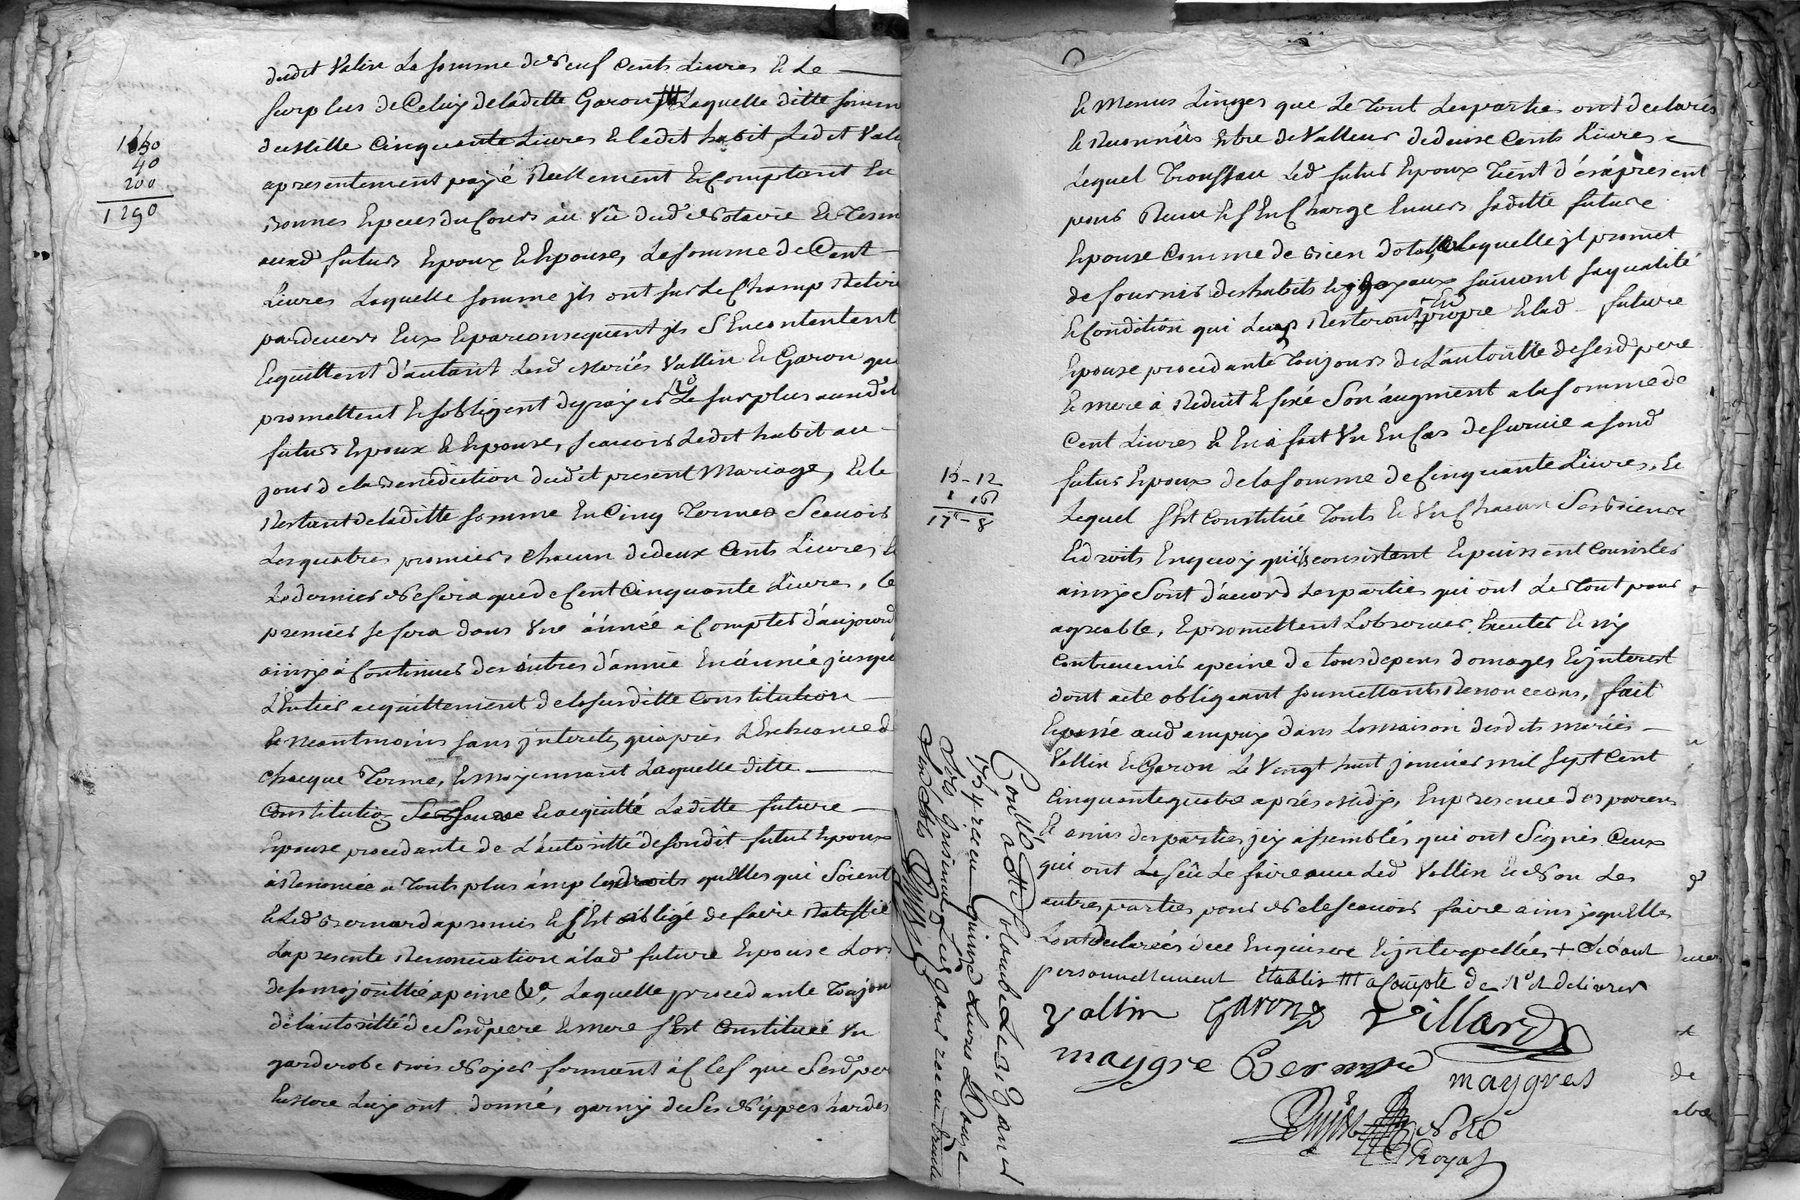 dudt Vallin La somme de Neuf Cents Livres & Le
surplus de Celuy de laditte Garon, Laquelle ditte somm
de Mille Cinquante Livres & ledit habit Ledit Vall
a presentement payé Reellement & Comptant En
Bonnes Especes du Cours au Vû dud. Notaire & Temn
auxd. futurs Epoux & Epouse, La somme de Cent
Livres Laquelle somme jls ont sur Le Champ Retiré
pardevers Eux & par consequent jls S'En contentent
& quittent d'autant Lesd. Mariés Vallin & Garon qui
promettent & s'obligent de payer Le surplus auxdit
futurs Epoux & Epouse, scauoir Ledit habit au
jour de la Benediction dudit present Mariage, & Le
Restant de laditte somme En Cinq Termes Scauoir
Les quatres premiers chacun de deux Cents Livres &
Le dernier Ne sera que de Cent Cinquante Livres, le
premier se fera dans Vne année à Compter d'aujourd
ainsy à Continuer des autres d'année En année jusqu
L'Entier acquittement de la susditte Constitution
& Neantmoins sans jnterets qu'après L'Echeance de
chacque Terme, & moyennant Laquelle ditte
Constitution & acquitté Laditte future
Epouse procedante de L'autorité de sondit futur Epoux
à Renoncée à Touts plus amples droits quelles qui Soient
& Led. Bernard a promis & s'Est obligé de faire Ratiffié
La presente Renonciation à lad. future Epouse Lors
de sa majorité a peine &a, Laquelle procedante Toujour
de l'autorité de Sesd. pere & mere s'Est Constituée Vn
garderobe Bois Noyer fermant à Clef que Sesd. per
& Mere Luy ont donné, garny de Ses Nippes hardes
1050
40
200
1290
& Menus Linges que Le Tout Les parties ont declarés
& Reconnûs Etre de Valleur de Cents Livres
Lequel Troussau Led. futur Epoux Tient d'és à présent
pour Recu & s'En Charge Envers saditte future
Epouse Comme de Bien dotal Laquelle jl promet
de fournir des habits & joyaux suivant sa qualité
& Condition qui Luy Resteront propre & lad. future
Epouse procedante Toujours de L'autorité de Sesd. pere
& mere à Reduit & fixé Son augment a la somme de
Cent Livres & En à fait Vn En Cas de survie a sond.
futur Epoux de la somme de Cinquante Livres, &
Lequel s'Est Constitué Touts & Vn Chacun Ses Biens
& droits En quoy qu'ils consistent & puissent Consister
ainsy Sont d'acord Les parties qui ont Le Tout pour
agreable, & promettent L'observer Executer & n'y
Contrevenir a peine de tous depens domages & jnterest
dont acte obligeant soumettants Renonceans, fait
& passé aud. ampuy dans La maison desdits mariés
Vallin & Garon Le Vingt huit janvier mil sept Cent
Cinquantequatre après Midy, En presence des parens
& amis des parties jcy assemblés qui ont Signés Ceux
qui ont Le sçû Le faire avec Led. Vallin & Non Les
autres parties pour Ne le scauoir faire ainsy qu'Elles
L'ont declarées de Ce Enquises & jnterpellées +
personnellement Etablis a Compte de
Vallin Garon Villard
maygre Bernard maygres
Notre
Royal
15 - 12
1 16
17 - 8
Conllé a Ste Colombe Le 31 Janv
1754 receu quinze Livres Douze